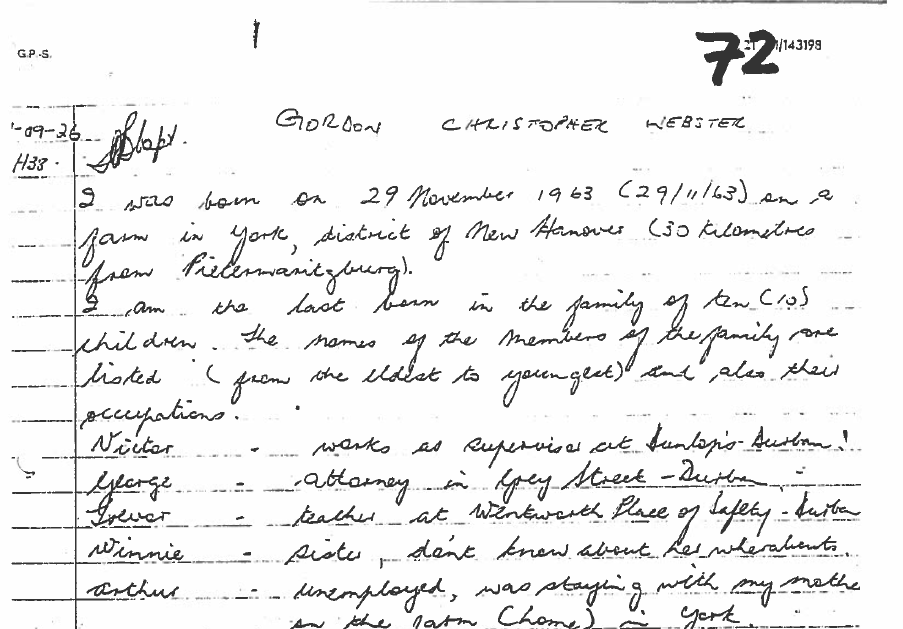 1
G.P.-S.
72
/143198
-09-26
H38.
GORDON CHRISTOPHER WEBSTER
I was born on 29 November 1963 (29/11/63) on a
farm in York, district of New Hanover (30 kilometres
from Pietermaritzburg).
I am the last born in the family of ten (10)
children. The names of the members of the family are
listed (from the eldest to youngest) and also their
occupations.
Victor - works as supervisor at Dunlop's-Durban!
George - attorney in Grey Street - Durban.
Trevor - teacher at Wentworth Place of Safety - Durban
Winnie - sister, don't know about her whereabouts.
Arthur - unemployed, was staying with my mothe
on the farm (home) in York.